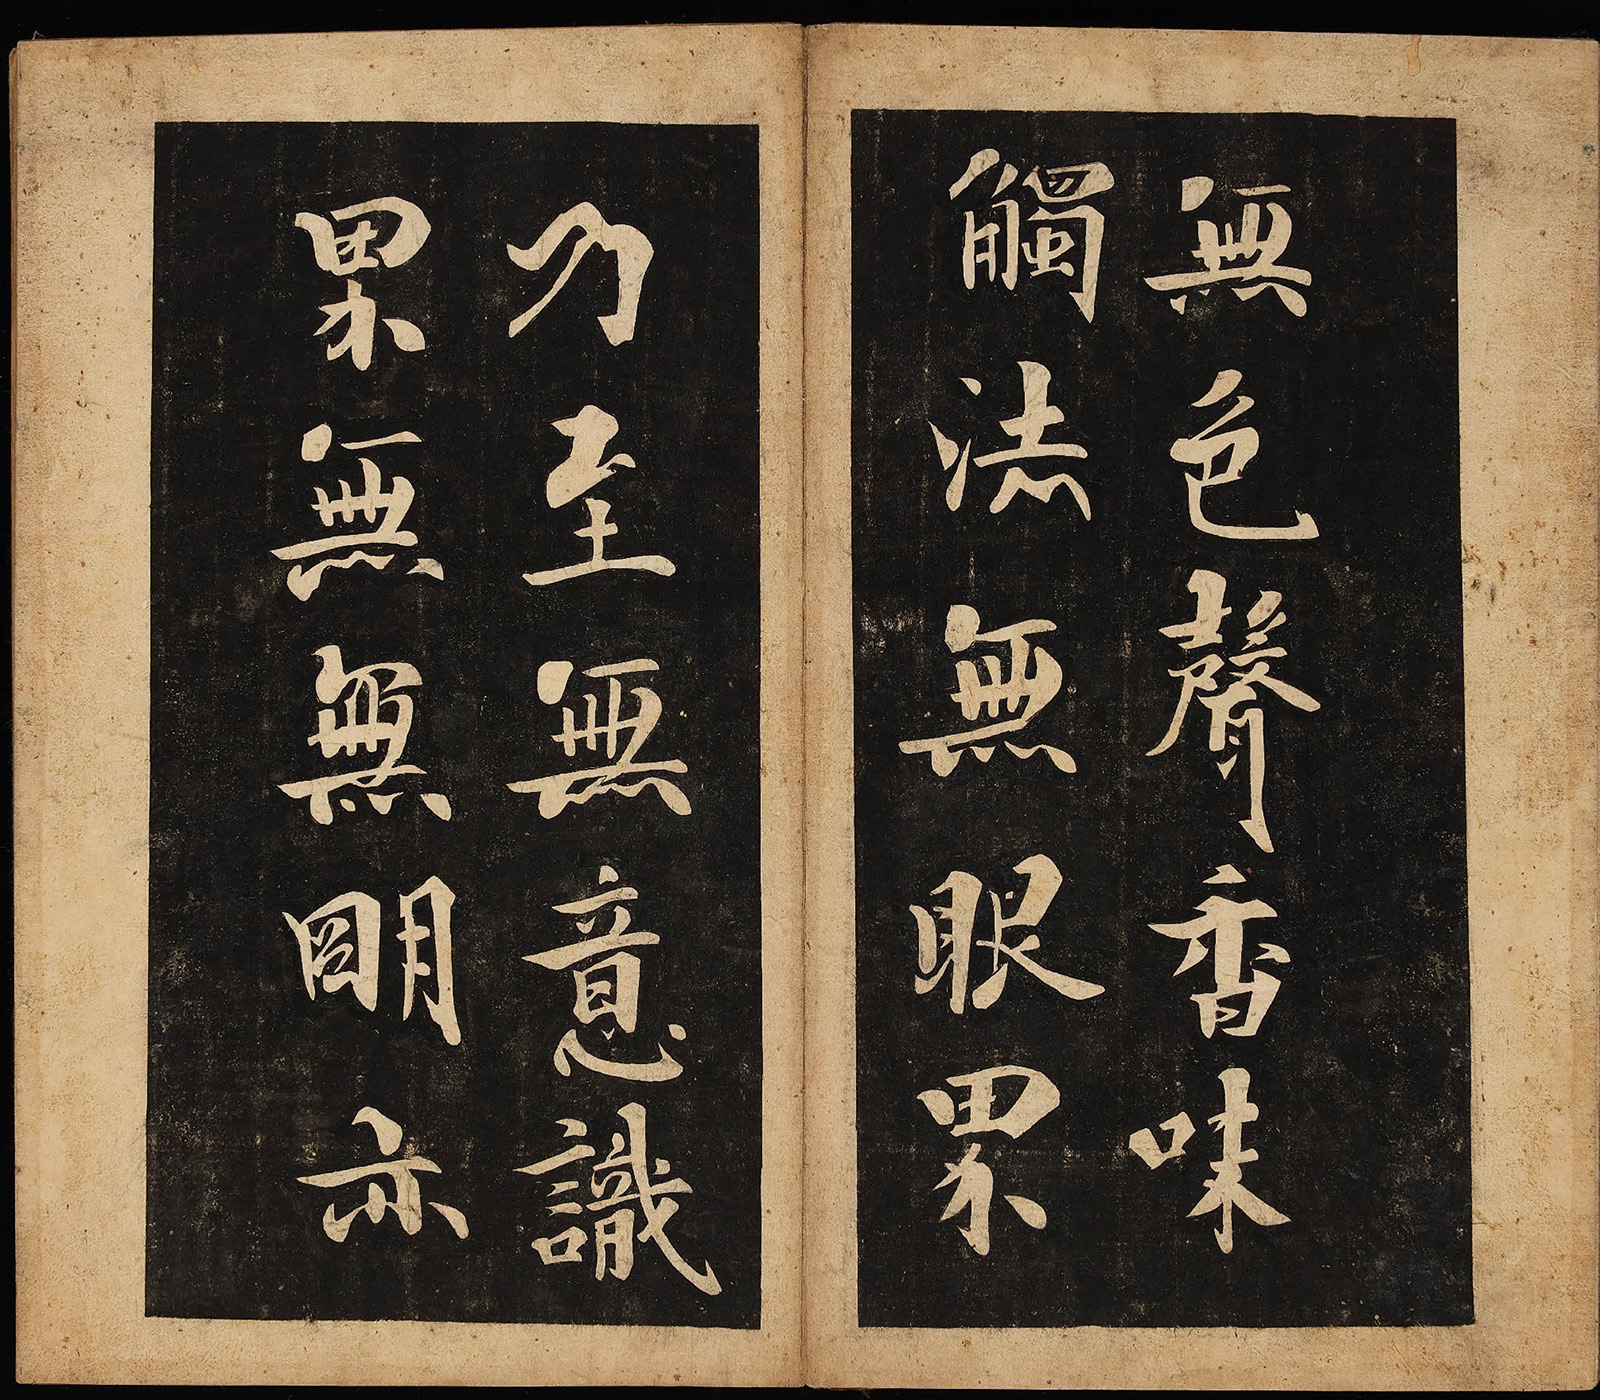 無色聲香味
觸法無眼界
乃至無意識
界無無明亦